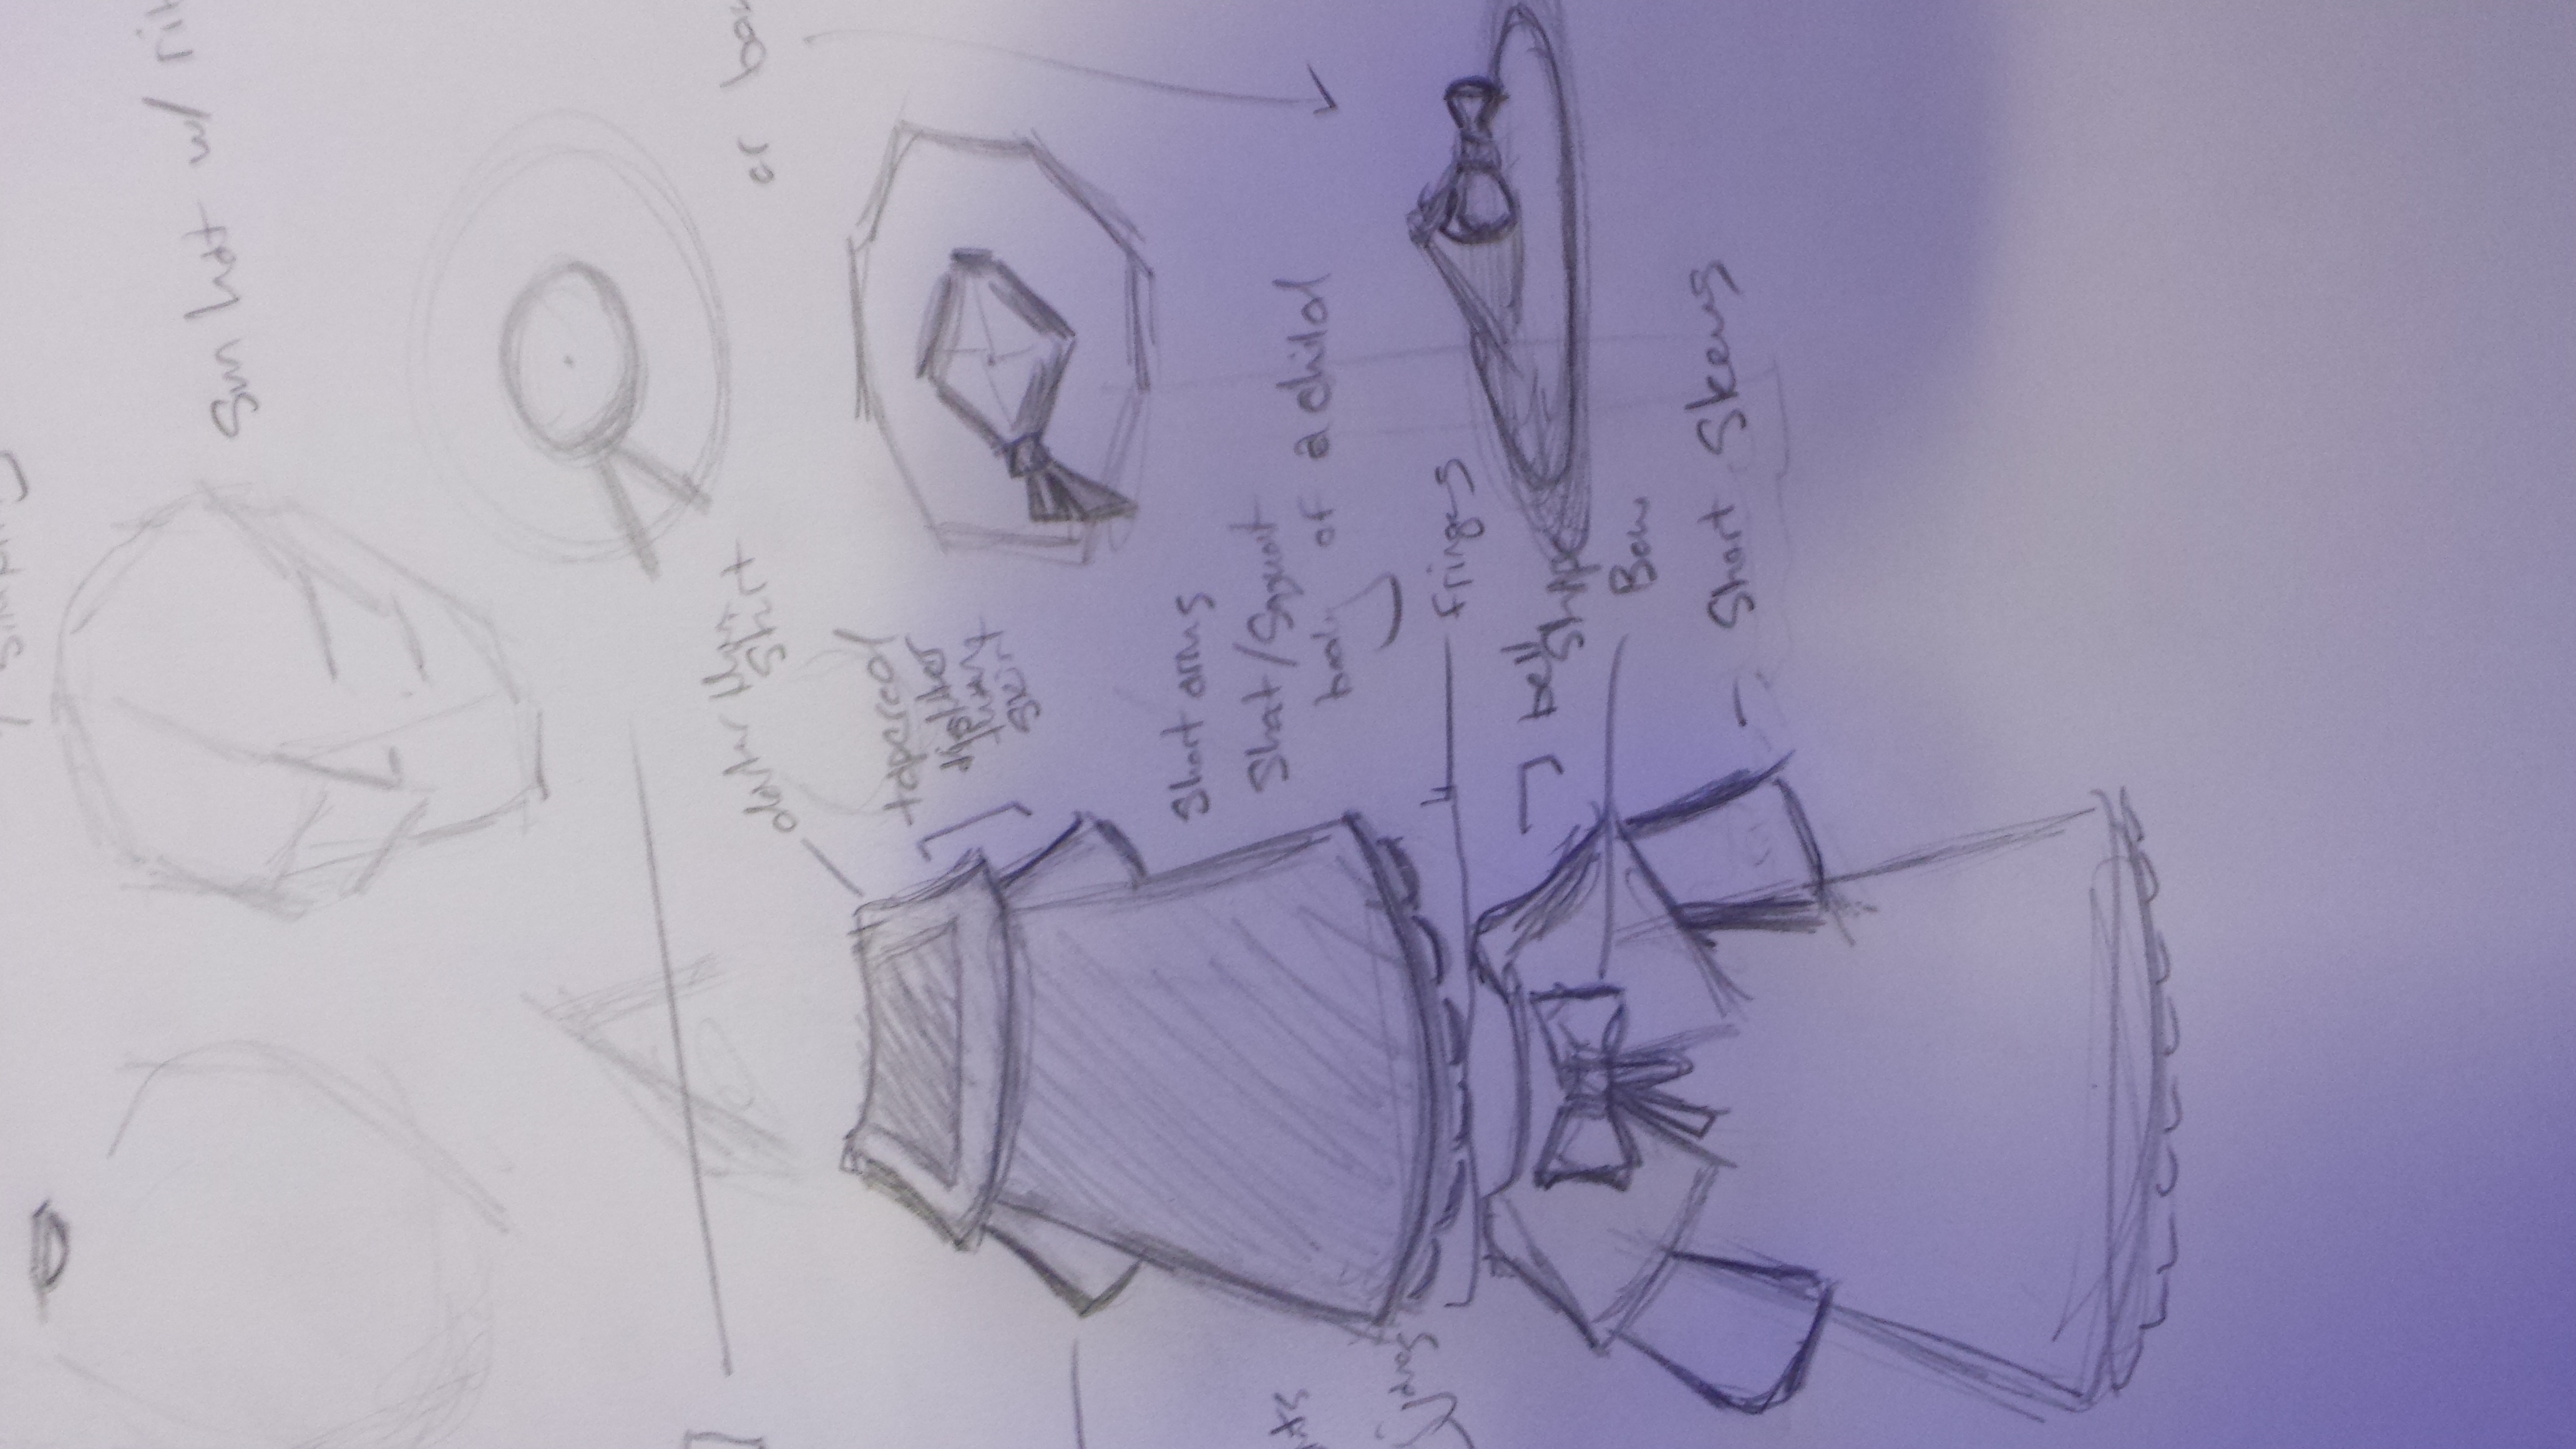 Sun hat w/
darker than
skirt
or
tapered
lighter
than
skirt
Short arms
Short/Squat
body of a child
fringes
bell
shape
Bow
Short